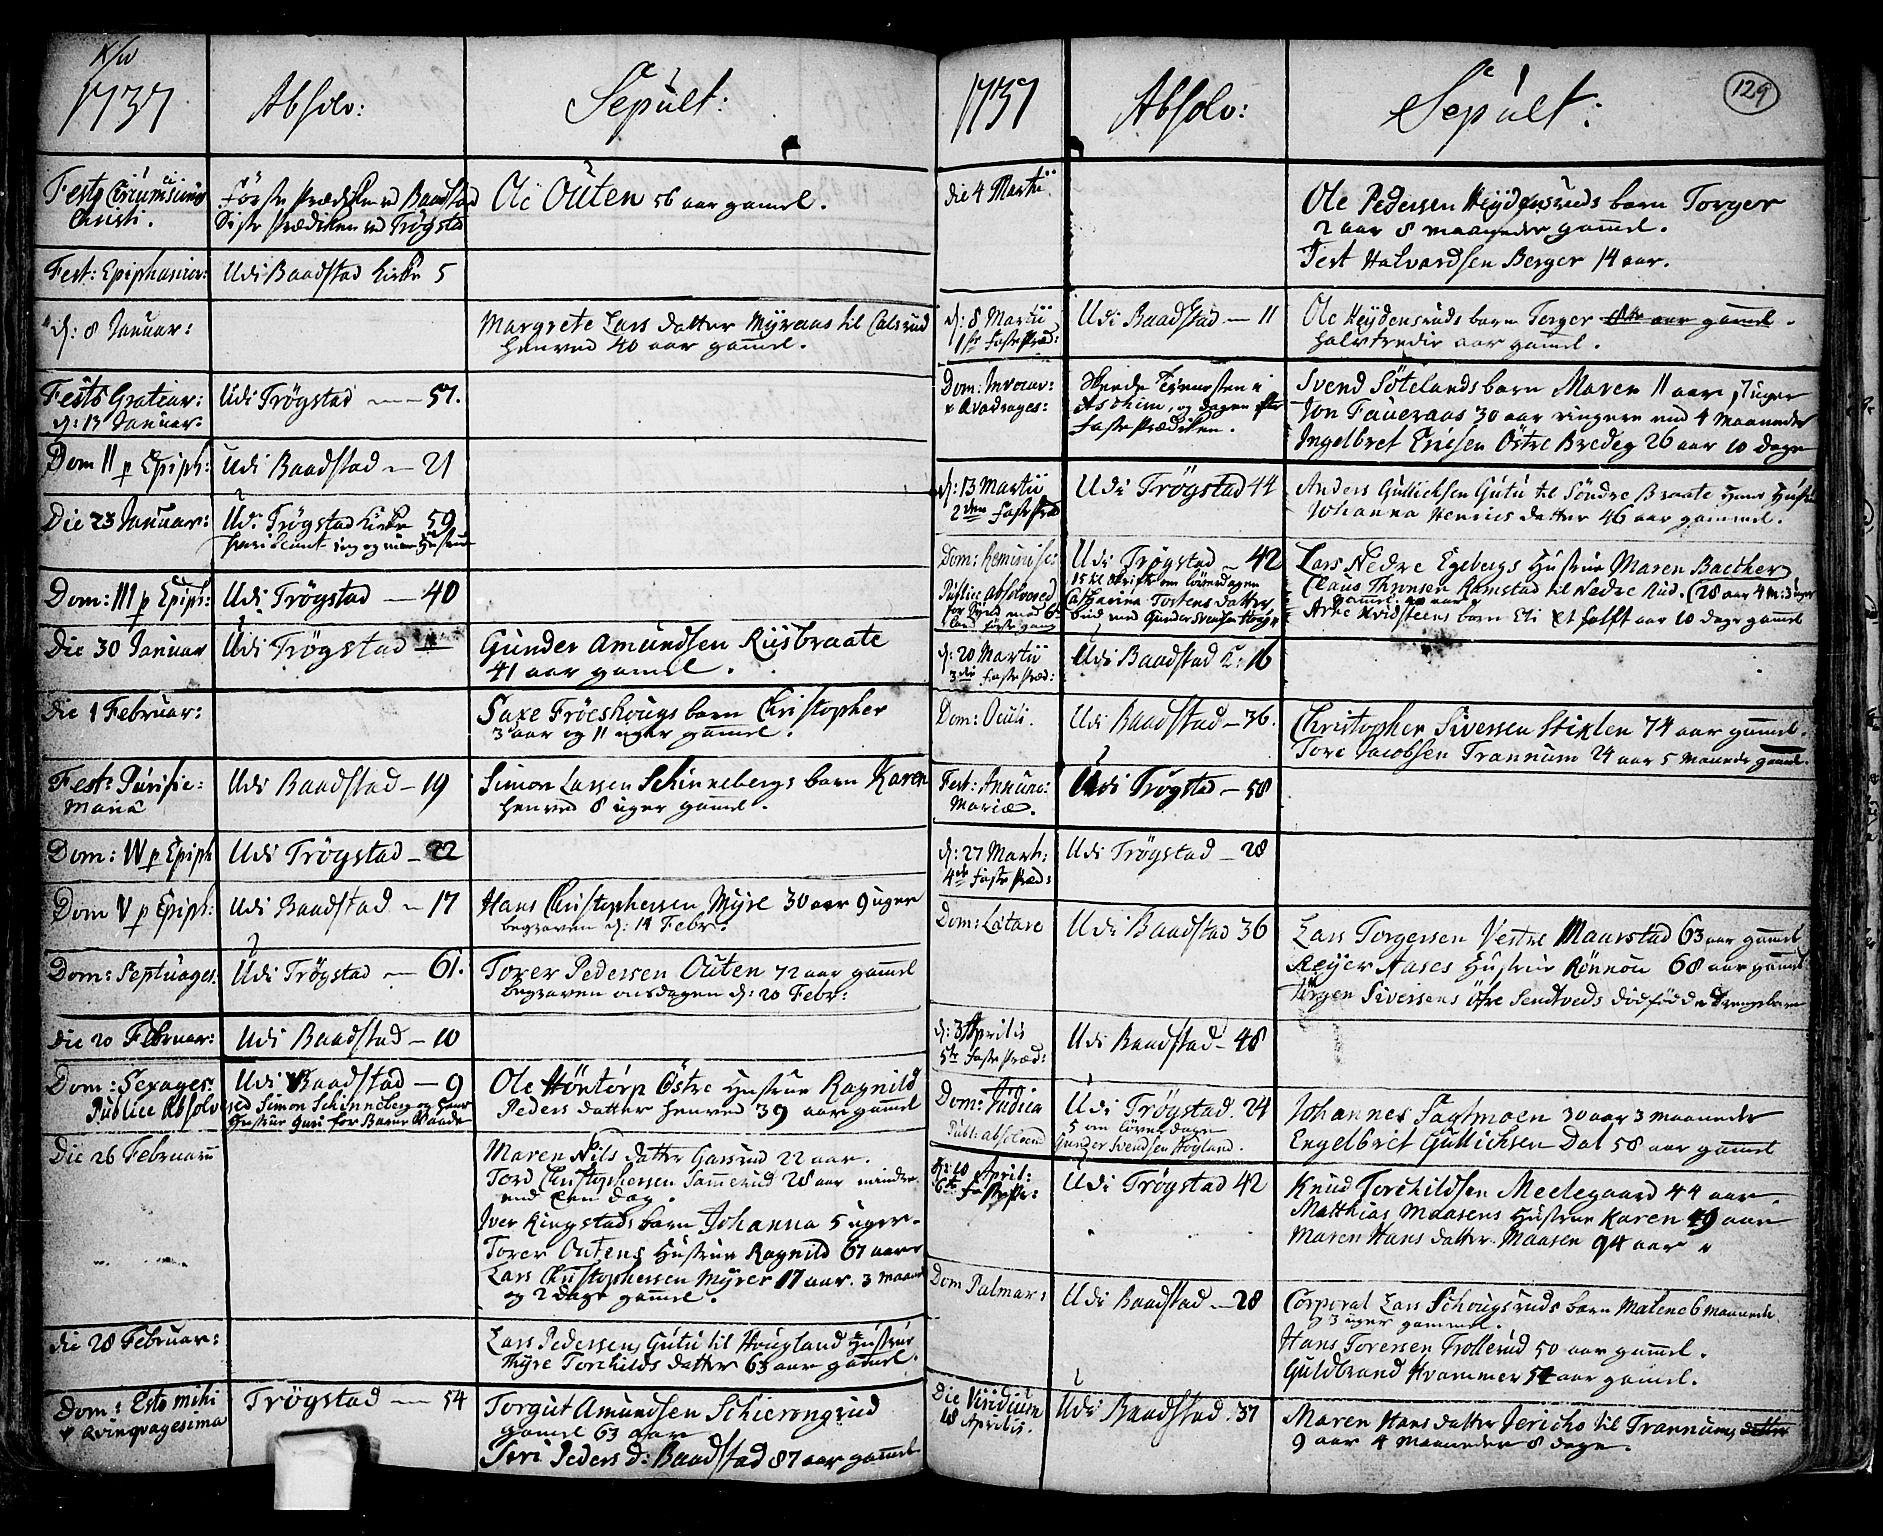 1737
Absolv:
Sepult:
Festo Circumcisionis
Christi.
Første Prædiken ved Baadstad
Siste Prædiken ved Trøgstad
Ole Outen 56 aar gamel.
Fest: Epiphaniar:
Udi Baadstad Kirke 5
d: 8 Januar:
Margrete Lars datter Myraas til
henved 40 aar gamel.
Festo Gratiar:
d: 13 Januar:
Udi Trøgstad — 57.
Dom II p Epiph:
Udi Baadstad — 21
Die 23 Januar:
Udi Trøgstad Kirke 59
Dom: III p Epiph:
Udi Trøgstad — 40
Die 30 Januar
Udi Trøgstad
Gunder Amundsen Riisbraate
41 aar gamel.
Die 1 Februar:
Saxe Frøeshougs barn Christopher
3 aar og 11 uger gamel.
Fest: Purific:
Mariæ
Udi Baadstad — 19
Simon Larsen Schinnebergs barn Karen
henved 8 uger gamel.
Dom: IV p Epiph
Udi Trøgstad — 22
Dom V p Epiph:
Udi Baadstad — 17
Hans Christophersen Myre 30 aar 9 uger
begraven d: 14 Febr:
Dom: Septuages:
Udi Trøgstad — 61.
Torer Pedersen Outen 72 aar gamel
begraven onsdagen d: 20 Febr:
Die 20 Februar:
Udi Baadstad — 10
Dom: Sexages:
Udi Baadstad — 9
Publice Absolvered Simon Schinneberg og hans
Hustrue Guri for
Ole Høntorp Østre Hustrue Ragnild
Peders datter henved 39 aar gamel
Die 26 Februarii
Maren Nils datter Garsrud 22 aar.
Tord Christophersen Sammerud 28 aar mindre
end een dag.
Iver Ringstads barn Johanna 5 uger.
Torer Outens Hustrue Ragnild 67 aar
Lars Christophersen Myrer 17 aar. 3 maan
og 2 Dage gamel.
die 28 Februar:
Lars Pedersen Gutu til Hougland Hustrue
Thyre Torchilds datter 63 aar gamel.
Dom: Esto mihi
v Qvinqvagesima
Trøgstad — 54
Torgut Amundsen Schierengrud
gamel 63 aar
Siri Peders d: Baadstad 87 aar gamel
1737
Absolv:
Sepult:
129
die 4 Martii
Ole Pedersen Heydensruds barn Torger
2 aar 8 maaneder gamel.
Halvardsen Berger 14 aar.
d: 8 Martii
1ste Faste Præd:
Udi Baadstad — 11
Ole Heydensruds barn Torger aar gamel.
halvtredie aar gamel.
Dom: Invocav:
v Qvadrages:
Skeede Tienesten i
Aschim, og dagen efter
Faste Prædiken.
Svend Søtelands barn Maren 11 aar 7 uger
Jon Faueraas 30 aar ringere end 4 Maaneder
Ingelbret Erichsen Østre Bredeg 26 aar 10 dage
d: 13 Martii
2den Faste Præd
Udi Trøgstad 44
Anders Gullichsen Gutu til Søndre Braate Hans Hustrue
Johanna Henrics datter 46 aar gamel.
Dom: Reminisc:
Publice absolvered
Udi Trøgstad — 42
15 til skrifte om løverdagen
Catharina Tostens datter
Gunder Svensen Hogland
Lars Nedre Egebergs Hustrue Maren Baether
Claus Thomsen Ramstad til Nedre Rud. (28 aar 4 m: 3 uger
gamel.
Arne Kvidsteens barn Eli et halft aar 10 dage gamel
d: 20 Martii
3die Faste Præd:
Udi Baadstad K: 16
Dom: Oculi.
Udi Baadstad — 36.
Christopher Siversen Stixlen 74 aar gamel.
Tore Jacobsen Trannum 24 aar 5 Maaneder gamel.
Fest: Annunc:
Mariæ.
Udi Trøgstad — 58
d: 27 Mart:
4de Faste Præd:
Udi Trøgstad — 28
Dom: Lætare
Udi Baadstad 36
Lars Torgersen Vestre Maarstad 63 aar gamel
Reyer Aases Hustrue Rønnou 68 aar gamel
Jørgen Siversens Øfre Sendtveds dødfødde Drengebarn
d: 3 Aprilis
5te Faste Præd:
Udi Baadstad — 48
Dom: Judica
Publ: absolvered
Udi Trøgstad. 24
5 om løverdagen
Gunder Svendsen Høgland.
Johannes Fagtmoen 30 aar 3 maaneder
Engelbret Gullichsen Dal 58 aar gamel
d: 10 April:
6te Faste Pr:
Udi Trøgstad 42
Knud Torchildsen Meelegaard 44 aar.
Matthias Maasens Hustrue Karen 49 aar
Maren Hans datter Maasen 94 aar
Dom Palmar:
Udi Baadstad — 28
Corporal Lars Schougsruds barn Malene 6 maaneder
og 3 uger gammel.
Hans Torersen Trollerud 50 aar gamel.
Guldbrand Hvammer 54 aar gamel.
Die Viridium
18 Aprilis.
Udi Baadstad. 37
Maren Hans datter Jericho til Trannum datter
9 aar 4 maaneder 8 dage.